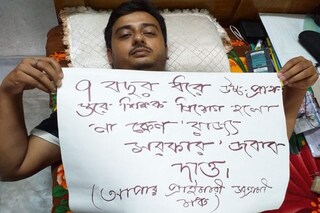 ৭ বছর ধরে উচ্চ প্রাথ
স্তরে শিক্ষক নিয়োগ হলো
না কেন 'রাজ্য
সরকার' জবাব
দাও।
(আপার প্রাইমারী চাকরী